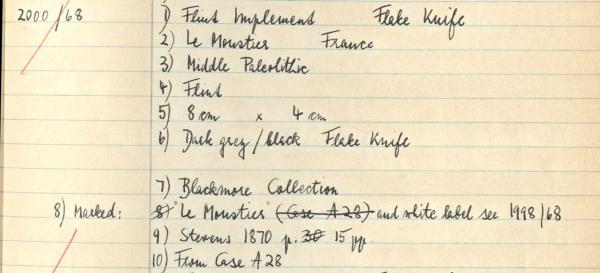 2000/68 1) Flint Implement Flake Knife
2) Le Moustier France
3) Middle Paleolithic
4) Flint
5) 8 cm x 4 cm
6) Dark grey/black Flake Knife
7) Blackmore Collection
8) Marked: 8) "Le Moustier" (Case A28) and white label see 1998/68
9) Stevens 1870 p. 30 15 pp.
10) From Case A28